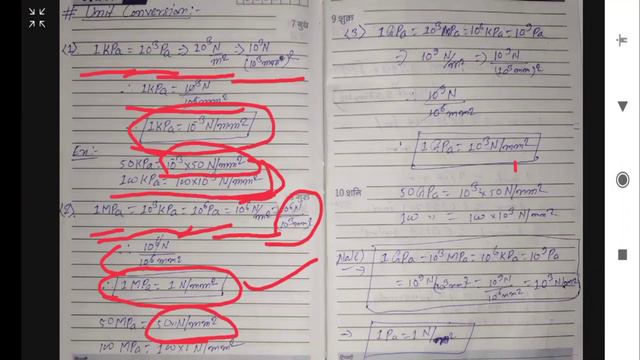 # Unit Conversion:-
7 बुध
(1) 1KPa = 10³Pa => 10³N/m² => 10³N/(10³mm)²
∴ 1KPa = 10³N/10⁶mm²
∴ 1KPa = 10⁻³ N/mm²
En:-
50KPa = 10⁻³ x 50 N/mm²
100KPa = 100x10⁻³ N/mm²
(2) 1MPa = 10³KPa = 10⁶Pa = 10⁶N/m² = 10⁶N/10³mm²
∴ 10⁶N/10⁶mm²
∴ 1MPa = 1N/mm²
50MPa = 50x1N/mm²
100 MPa = 100x1 N/mm²
9 शुक्र
(3) 1GPa = 10³MPa = 10⁶KPa = 10⁹Pa
=> 10⁹ N/m² => 10⁹N/(10³mm)²
∴ 10⁹N/10⁶mm²
∴ 1GPa = 10³N/mm²
10 शनि
50GPa = 10³ x 50 N/mm²
100 " = 100 x 10³ N/mm²
1GPa = 10³MPa = 10⁶KPa = 10⁹Pa
= 10⁹N/(10³mm)² = 10⁹N/10⁶mm² = 10³N/mm²
-> 1Pa = 1N/m²